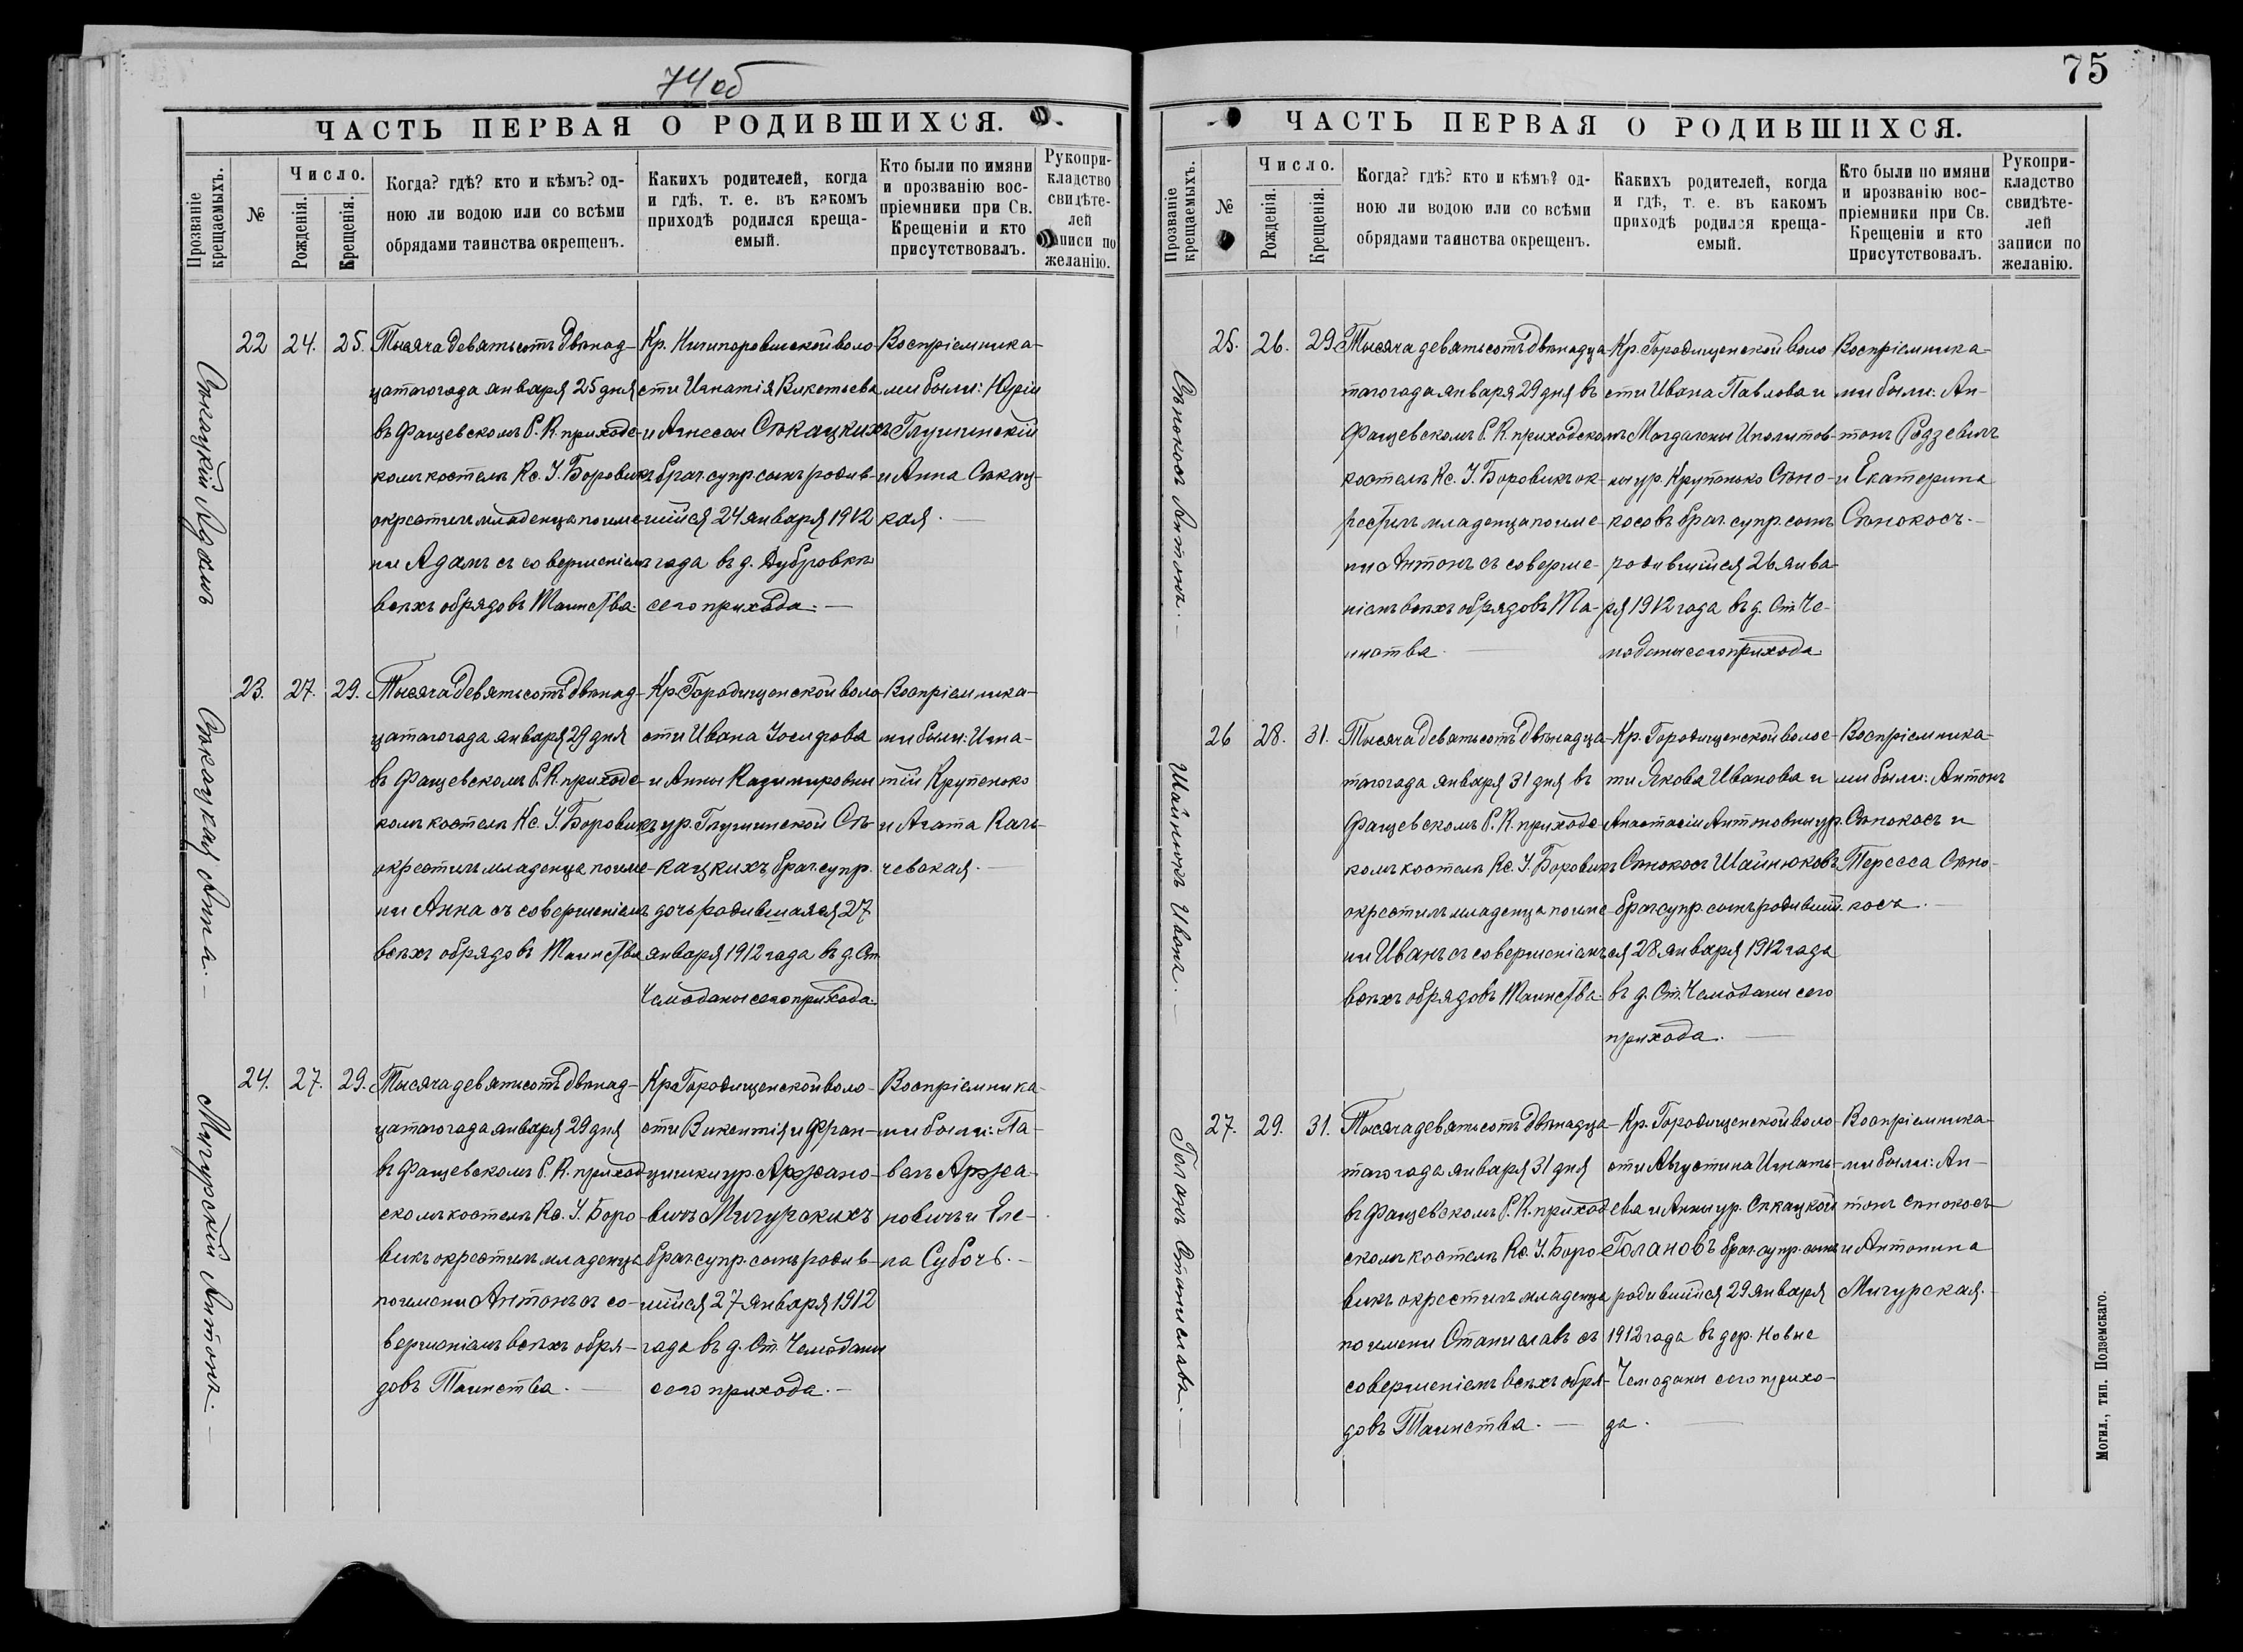 74 об
ЧАСТЬ ПЕРВАЯ О РОДИВШИХСЯ.
Прозваніе крещаемыхъ.
№
Число.
Рожденія.
Крещенія.
Когда? гдѣ? кто и кѣмъ? од-
ною ли водою или со всѣми
обрядами таинства окрещенъ.
Какихъ родителей, когда
и гдѣ, т. е. въ какомъ
приходѣ родился креща-
емый.
Кто были по имяни
и прозванію вос-
пріемники при Св.
Крещеніи и кто
присутствовалъ.
Рукопри-
кладство
свидѣте-
лей
записи по
желанію.
Сѣкацкій Адамъ
22
24.
25.
Тысяча девятьсотъ двѣнад-
цатаго года января 25 дня
въ Фащевскомъ Р. К. приходс-
комъ костелѣ Кс. І. Боровикъ
окрестилъ младенца по име-
ни Адамъ съ совершеніемъ
всѣхъ обрядовъ Таинства.
Кр. Ничипоровской воло-
сти Игнатія Викетьева
и Агнесы Сѣкацкихъ
брач. супр. сынъ родив-
шійся 24 января 1912
года въ д. Дубровкѣ
сего прихода. —
Воспріемника-
ми были: Юрій
Глушинскій
и Анна Сѣкац-
кая. —
Сѣкацкая Анна. —
23.
27.
29.
Тысяча девятьсотъ двѣнад-
цатаго года января 29 дня
въ Фащевскомъ Р. К. приходс-
комъ костелѣ Кс. І. Боровикъ
окрестилъ младенца по име-
ни Анна съ совершеніемъ
всѣхъ обрядовъ Таинства
Кр. Городищенской воло-
сти Ивана Іосифова
и Анны Казимировны
ур. Глушинской Сѣ-
кацкихъ, брач. супр.
дочь родившаяся 27
января 1912 года въ д. Ст.
Чемоданы сего прихода.
Воспріемника-
ми были: Игна-
тій Крупенько
и Агата Каль-
чевская. —
Мигурскій Антонъ. —
24.
27.
29.
Тысяча девятьсотъ двѣнад-
цатаго года января 29 дня
въ Фащевскомъ Р. К. приход-
скомъ костелѣ Кс. І. Боро-
викъ окрестилъ младенца
по имени Антонъ съ со-
вершеніемъ всѣхъ обря-
довъ Таинства. —
Кр. Городищенской воло-
сти Викентія и Фран-
цишки ур. Аржано-
вичъ Мигурскихъ
брач. супр. сынъ родив-
шійся 27 января 1912
года въ д. Ст. Чемоданы
сего прихода. —
Воспріемника-
ми были: Па-
велъ Аржа-
новичъ и Еле-
на Субочь. —
75
ЧАСТЬ ПЕРВАЯ О РОДИВШИХСЯ.
Прозваніе крещаемыхъ.
№
Число.
Рожденія.
Крещенія.
Когда? гдѣ? кто и кѣмъ? од-
ною ли водою или со всѣми
обрядами таинства окрещенъ.
Какихъ родителей, когда
и гдѣ, т. е. въ какомъ
приходѣ родился креща-
емый.
Кто были по имяни
и прозванію вос-
пріемники при Св.
Крещеніи и кто
присутствовалъ.
Рукопри-
кладство
свидѣте-
лей
записи по
желанію.
Сѣнокосъ Антонъ. —
25.
26.
29.
Тысяча девятьсотъ двѣнадца-
таго года января 29 дня въ
Фащевскомъ Р. К. приходскомъ
костелѣ Кс. І. Боровикъ ок-
рестилъ младенца по име-
ни Антонъ съ соверше-
ніемъ всѣхъ обрядовъ Та-
инства. —
Кр. Городищенской воло
сти Ивана Павлова и
Магдалены Иполитов-
ны ур. Крупенько Сѣно-
косовъ брач. супр. сынъ
родившійся 26 янва
ря 1912 года въ д. Ст. Че-
моданы сего прихода.
Воспріемника-
ми были: Ан-
тонъ Родзевичъ
и Екатерина
Сѣнокосъ. —
Шайнюкъ Иванъ. —
26
28.
31.
Тысяча девятьсотъ двѣнадца-
таго года января 31 дня въ
Фащевскомъ Р. К. приходс-
комъ костелѣ Кс. І. Боровикъ
окрестилъ младенца по име-
ни Иванъ съ совершеніемъ
всѣхъ обрядовъ Таинства.
Кр. Городищенской волос-
ти Якова Иванова и
Анастасіи Антоновны ур.
Сѣнокосъ Шайнюковъ
брач. супр. сынъ родивші-
ся 28 января 1912 года
въ д. Ст. Чемоданы сего
прихода. —
Воспріемника-
ми были: Антонъ
Сѣнокосъ и
Тереса Сѣно-
косъ. —
Голанъ Станиславъ. —
27.
29.
31.
Тысяча девятьсотъ двѣнадца-
таго года января 31 дня
въ Фащевскомъ Р. К. приход
скомъ костелѣ Кс. І. Боро-
викъ окрестилъ младенца
по имени Станиславъ съ
совершеніемъ всѣхъ обря-
довъ Таинства. —
Кр. Городищенской воло-
сти Августина Игнать-
ева и Анны ур. Сѣкацкой
Голановъ брач. супр. сынъ
родившійся 29 января
1912 года въ дер. Новые
Чемоданы сего прихо-
да. —
Воспріемника-
ми были: Ан-
тонъ Сѣнокосъ
и Антонина
Мигурская.
Могил., тип. Подземскаго.